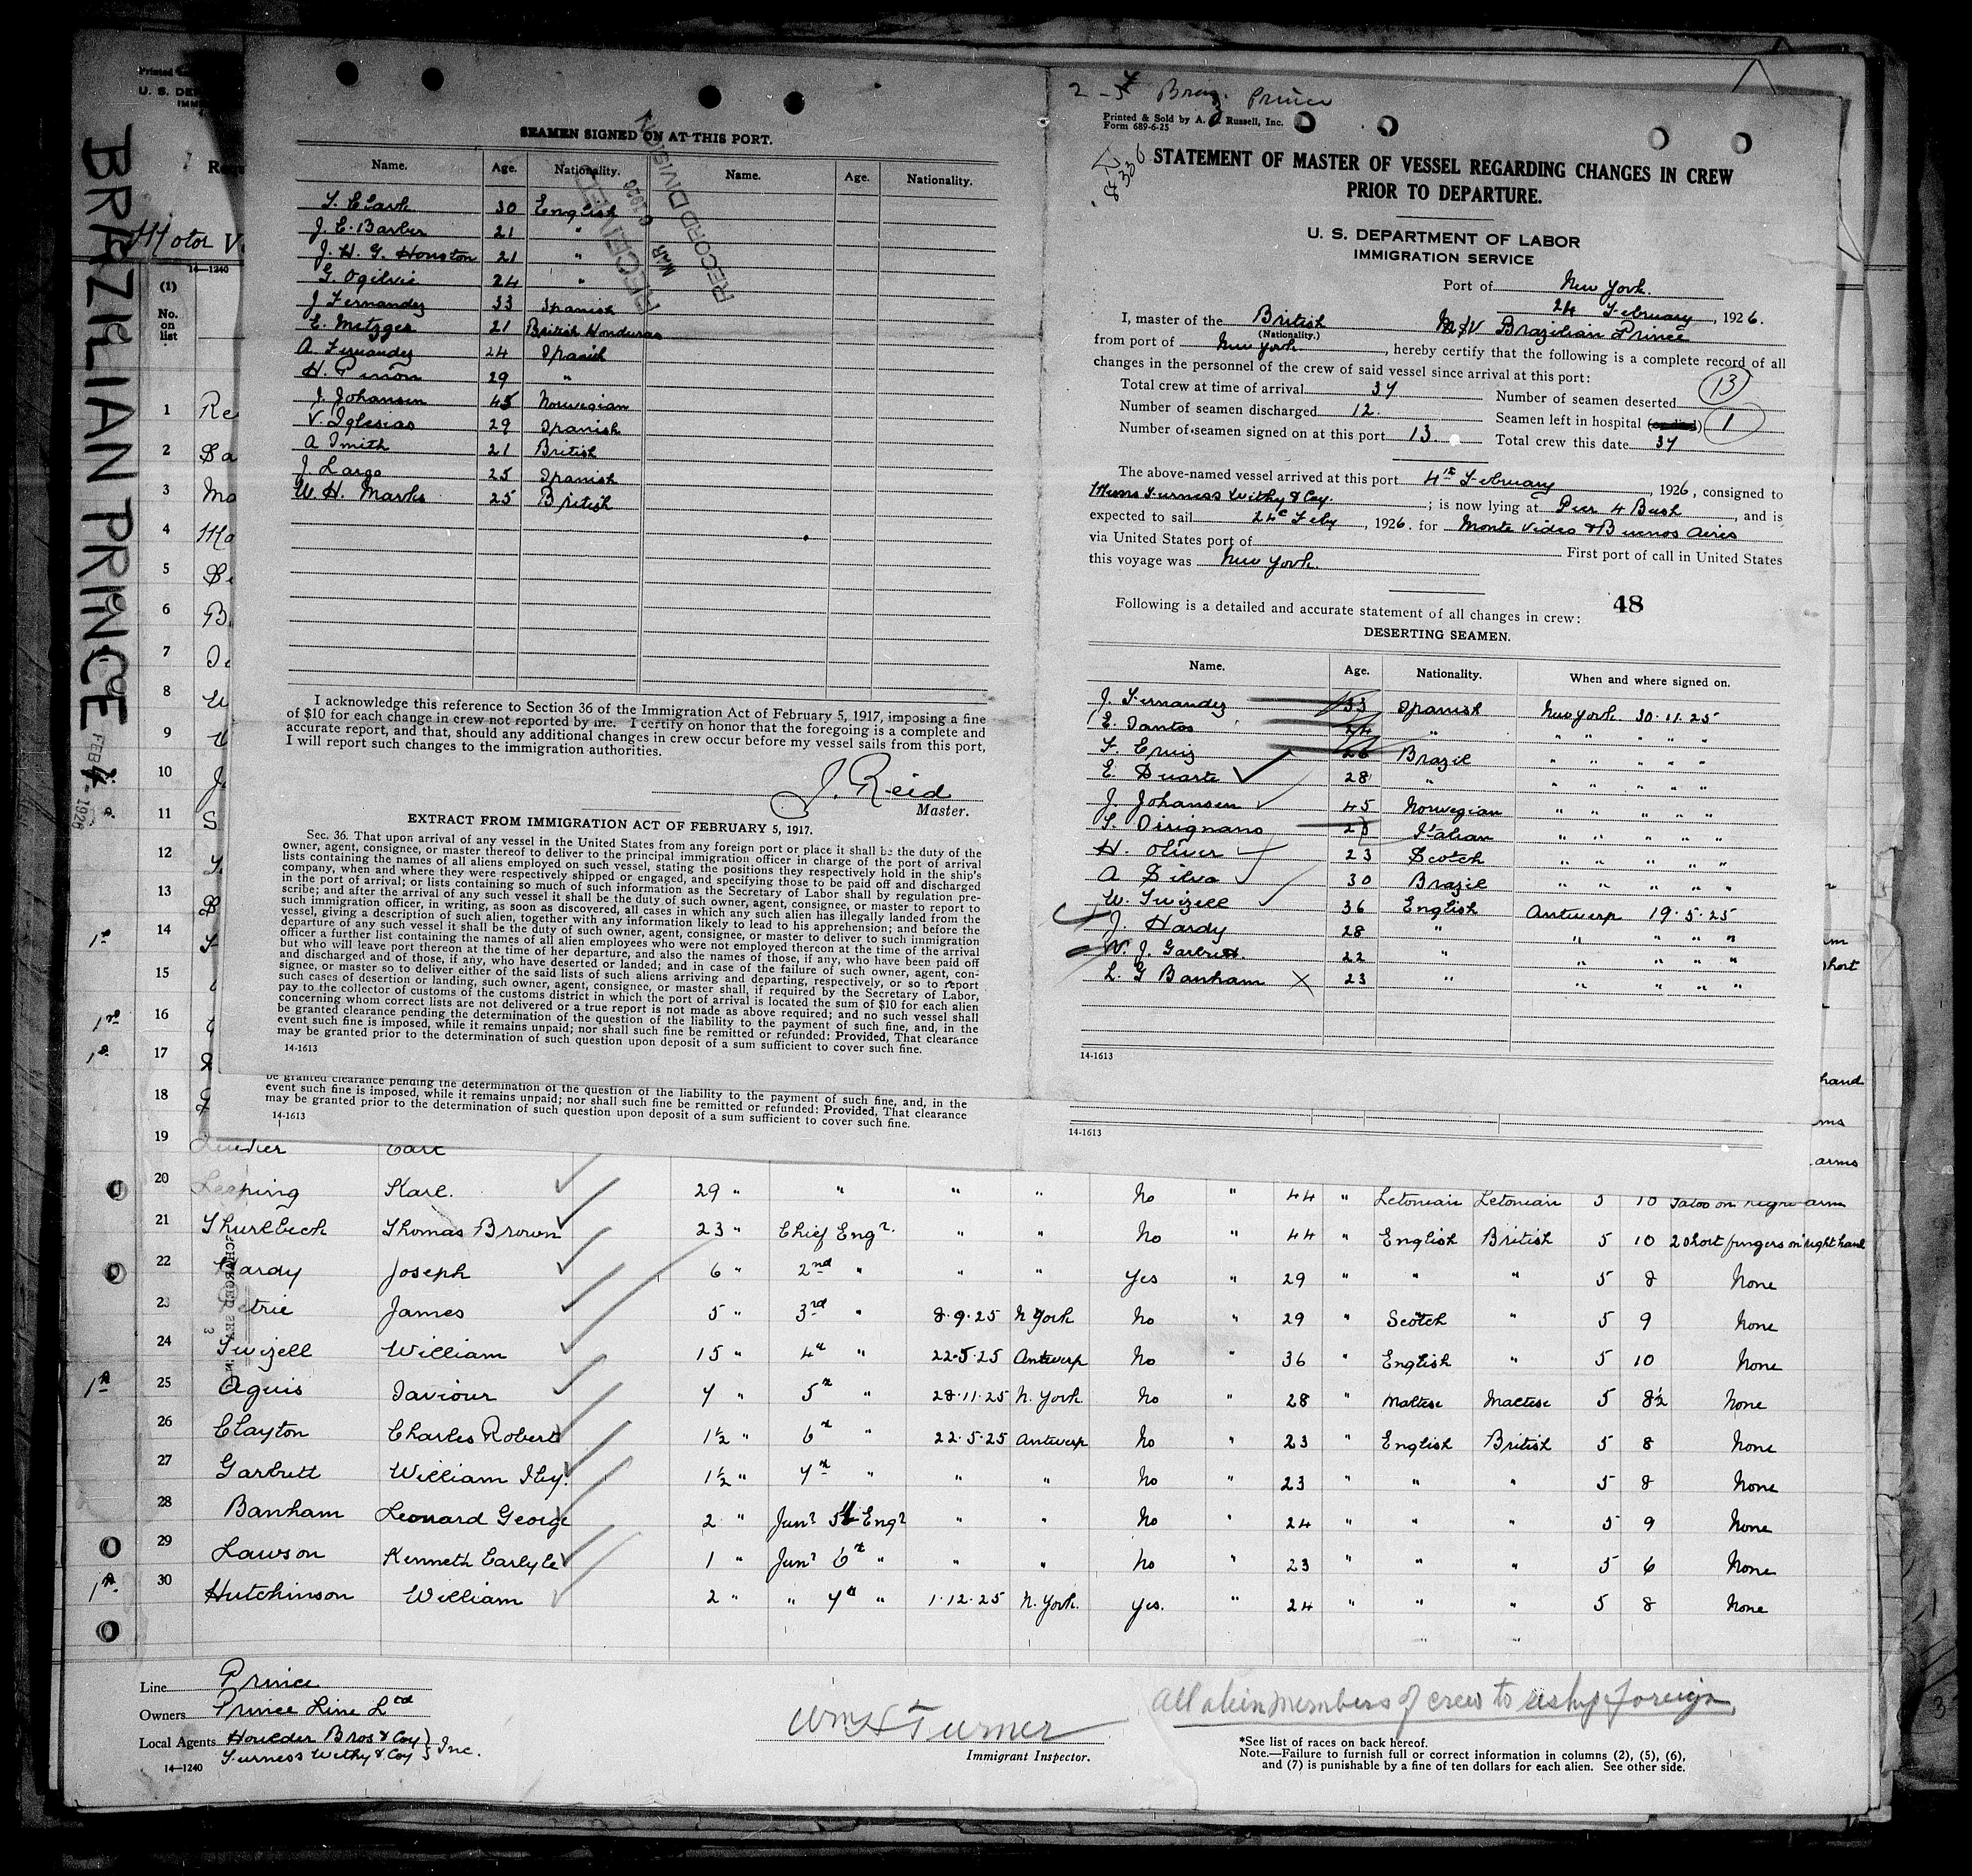 BRAZILIAN PRINCE
FEB 4 - 1926
Printed
U. S. DE
IMM
Motor V
14—1240
(1)
No.
on
list
1 Re
2 Sa
3 Ma
4 Mo
5
6 B
7
8 W
9
10 J
11 S
12
13
14
15
16
17
18
SEAMEN SIGNED ON AT THIS PORT.
Name. Age. Nationality. Name. Age. Nationality.
RECORD DIVISION
RECEIVED
MAR
T. Clark 30 English
J. E. Barber 21 "
J. H. G. Houston 21 "
G. Ogilvie 24 "
J Fernandez 33 Spanish
E. Metzger 21 British Honduras
A. Fernandez 24 Spanish
H. Pinon 29 "
J. Johansen 45 Norwegian
V. Iglesias 29 Spanish
A Smith 21 British
J. Largo 25 Spanish
W. H. Marks 25 British
I acknowledge this reference to Section 36 of the Immigration Act of February 5, 1917, imposing a fine
of $10 for each change in crew not reported by me. I certify on honor that the foregoing is a complete and
accurate report, and that, should any additional changes in crew occur before my vessel sails from this port,
I will report such changes to the immigration authorities.
J. Reid
Master.
EXTRACT FROM IMMIGRATION ACT OF FEBRUARY 5, 1917.
Sec. 36. That upon arrival of any vessel in the United States from any foreign port or place it shall be the duty of the
owner, agent, consignee, or master thereof to deliver to the principal immigration officer in charge of the port of arrival
lists containing the names of all aliens employed on such vessel, stating the positions they respectively hold in the ship's
company, when and where they were respectively shipped or engaged, and specifying those to be paid off and discharged
in the port of arrival; or lists containing so much of such information as the Secretary of Labor shall by regulation pre-
scribe; and after the arrival of any such vessel it shall be the duty of such owner, agent, consignee, or master to report to
such immigration officer, in writing, as soon as discovered, all cases in which any such alien has illegally landed from the
vessel, giving a description of such alien, together with any information likely to lead to his apprehension; and before the
departure of any such vessel it shall be the duty of such owner, agent, consignee, or master to deliver to such immigration
officer a further list containing the names of all alien employees who were not employed thereon at the time of the arrival
but who will leave port thereon at the time of her departure, and also the names of those, if any, who have been paid off
and discharged and of those, if any, who have deserted or landed; and in case of the failure of such owner, agent, con-
signee, or master so to deliver either of the said lists of such aliens arriving and departing, respectively, or so to report
such cases of desertion or landing, such owner, agent, consignee, or master shall, if required by the Secretary of Labor,
pay to the collector of customs of the customs district in which the port of arrival is located the sum of $10 for each alien
concerning whom correct lists are not delivered or a true report is not made as above required; and no such vessel shall
be granted clearance pending the determination of the question of the liability to the payment of such fine, and, in the
event such fine is imposed, while it remains unpaid; nor shall such fine be remitted or refunded: Provided, That clearance
may be granted prior to the determination of such question upon deposit of a sum sufficient to cover such fine.
14-1613
be granted clearance pending the determination of the question of the liability to the payment of such fine, and, in the
event such fine is imposed, while it remains unpaid; nor shall such fine be remitted or refunded: Provided, That clearance
may be granted prior to the determination of such question upon deposit of a sum sufficient to cover such fine.
14-1613
Braz. Prince
Printed & Sold by A. Russell, Inc.
Form 689-6-25
STATEMENT OF MASTER OF VESSEL REGARDING CHANGES IN CREW
PRIOR TO DEPARTURE.
U. S. DEPARTMENT OF LABOR
IMMIGRATION SERVICE
Port of New York.
24 February, 1926.
I, master of the British M/V Brazilian Prince
(Nationality.)
from port of New York, hereby certify that the following is a complete record of all
changes in the personnel of the crew of said vessel since arrival at this port:
Total crew at time of arrival 37 Number of seamen deserted 13
Number of seamen discharged 12. Seamen left in hospital (or died) 1
Number of seamen signed on at this port 13. Total crew this date 37
The above-named vessel arrived at this port 4th February, 1926, consigned to
Messrs Furness Withy & Coy.; is now lying at Pier 4 Bush, and is
expected to sail 24th Feby, 1926. for Monte Video & Buenos Aires
via United States port of First port of call in United States
this voyage was New York.
48
Following is a detailed and accurate statement of all changes in crew:
DESERTING SEAMEN.
Name. Age. Nationality. When and where signed on.
J. Fernandez 33 Spanish New York 30.11.25
E. Santos 24 " " " " " "
F. Cruiz 26 Brazil " " " " "
E. Duarte 28 " " " " " "
J. Johansen 45 Norwegian " " " " "
S. Dirignano 28 Italian " " " " "
H. Oliver 23 Scotch " " " " "
A Silva 30 Brazil " " " " "
W. Twizell 36 English Antwerp 19.5.25
J. Hardy 28 " " " " "
W. J. Garbutt. 22 " " " " "
L. G Banham 23 " " " " "
14-1613
14-1613
hort
hand
arms
19 Carl
20 Leeping Karl. 29 " " " " No " 44 " Letonian Letonian 5 10 Tatoo on right arm
21 Thurlbeck Thomas Brown 23 " Chief Engr. " " No " 44 " English British 5 10 2 short fingers on right hand
22 Hardy Joseph 6 " 2nd " " " Yes " 29 " " " 5 8 None
23 Petrie James 5 " 3rd " 8.9.25 N York No " 29 " Scotch " 5 9 None
24 Twizell William 15 " 4th " 22.5.25 Antwerp No " 36 " English " 5 10 None
25 Aguis Saviour 7 " 5th " 28.11.25 N. York No " 28 " Maltese Maltese 5 8½ None
26 Clayton Charles Robert 1½ " 6th " 22.5.25 Antwerp No " 23 " English British 5 8 None
27 Garbutt William Jby. 1½ " 7th " " " No " 23 " " " 5 8 None
28 Banham Leonard George 2 " Junr 5th Engr " " No " 24 " " " 5 9 None
29 Lawson Kenneth Carlyle 1 " Junr 6th " " " No " 23 " " " 5 6 None
30 Hutchinson William 2 " " 7th " 1.12.25 N. York. Yes. " 24 " " " 5 8 None
Line Prince
Owners Prince Line Ltd
Local Agents Houlder Bros & Coy
Furness Withy & Coy } Inc.
14—1240
Wm H Turner
Immigrant Inspector.
All alien members of crew to reship foreign
*See list of races on back hereof.
Note.—Failure to furnish full or correct information in columns (2), (5), (6),
and (7) is punishable by a fine of ten dollars for each alien. See other side.